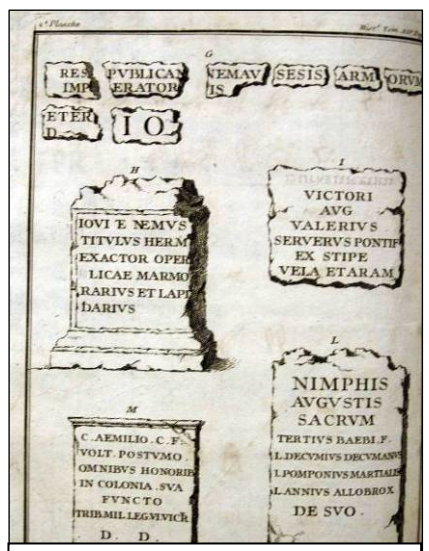 2.e Planche
G
RES PVBLICAN NEMAV SESIS ARM ORVM
IMP ERATOR IS
ETER I O
D.
H
IOVI E NEMVS
TITVLVS HERM
EXACTOR OPER
LICAE MARMO
RARIVS ET LAPI
DARIVS
I
VICTORI
AVG
VALERIVS
SERVERVS PONTIF
EX STIPE
VELA ETARAM
L
NIMPHIS
AVGVSTIS
SACRVM
TERTIVS BAEBI.F.
L.DECVMIVS DECVMANVS
L.POMPONIVS MARTIALIS
L.ANNIVS ALLOBROX
DE SVO.
M
C.AEMILIO.C.F.
VOLT.POSTVMO.
OMNIBVS HONORIB
IN COLONIA.SVA
FVNCTO
TRIB.MIL.LEG.VI.VICR.
D. D.